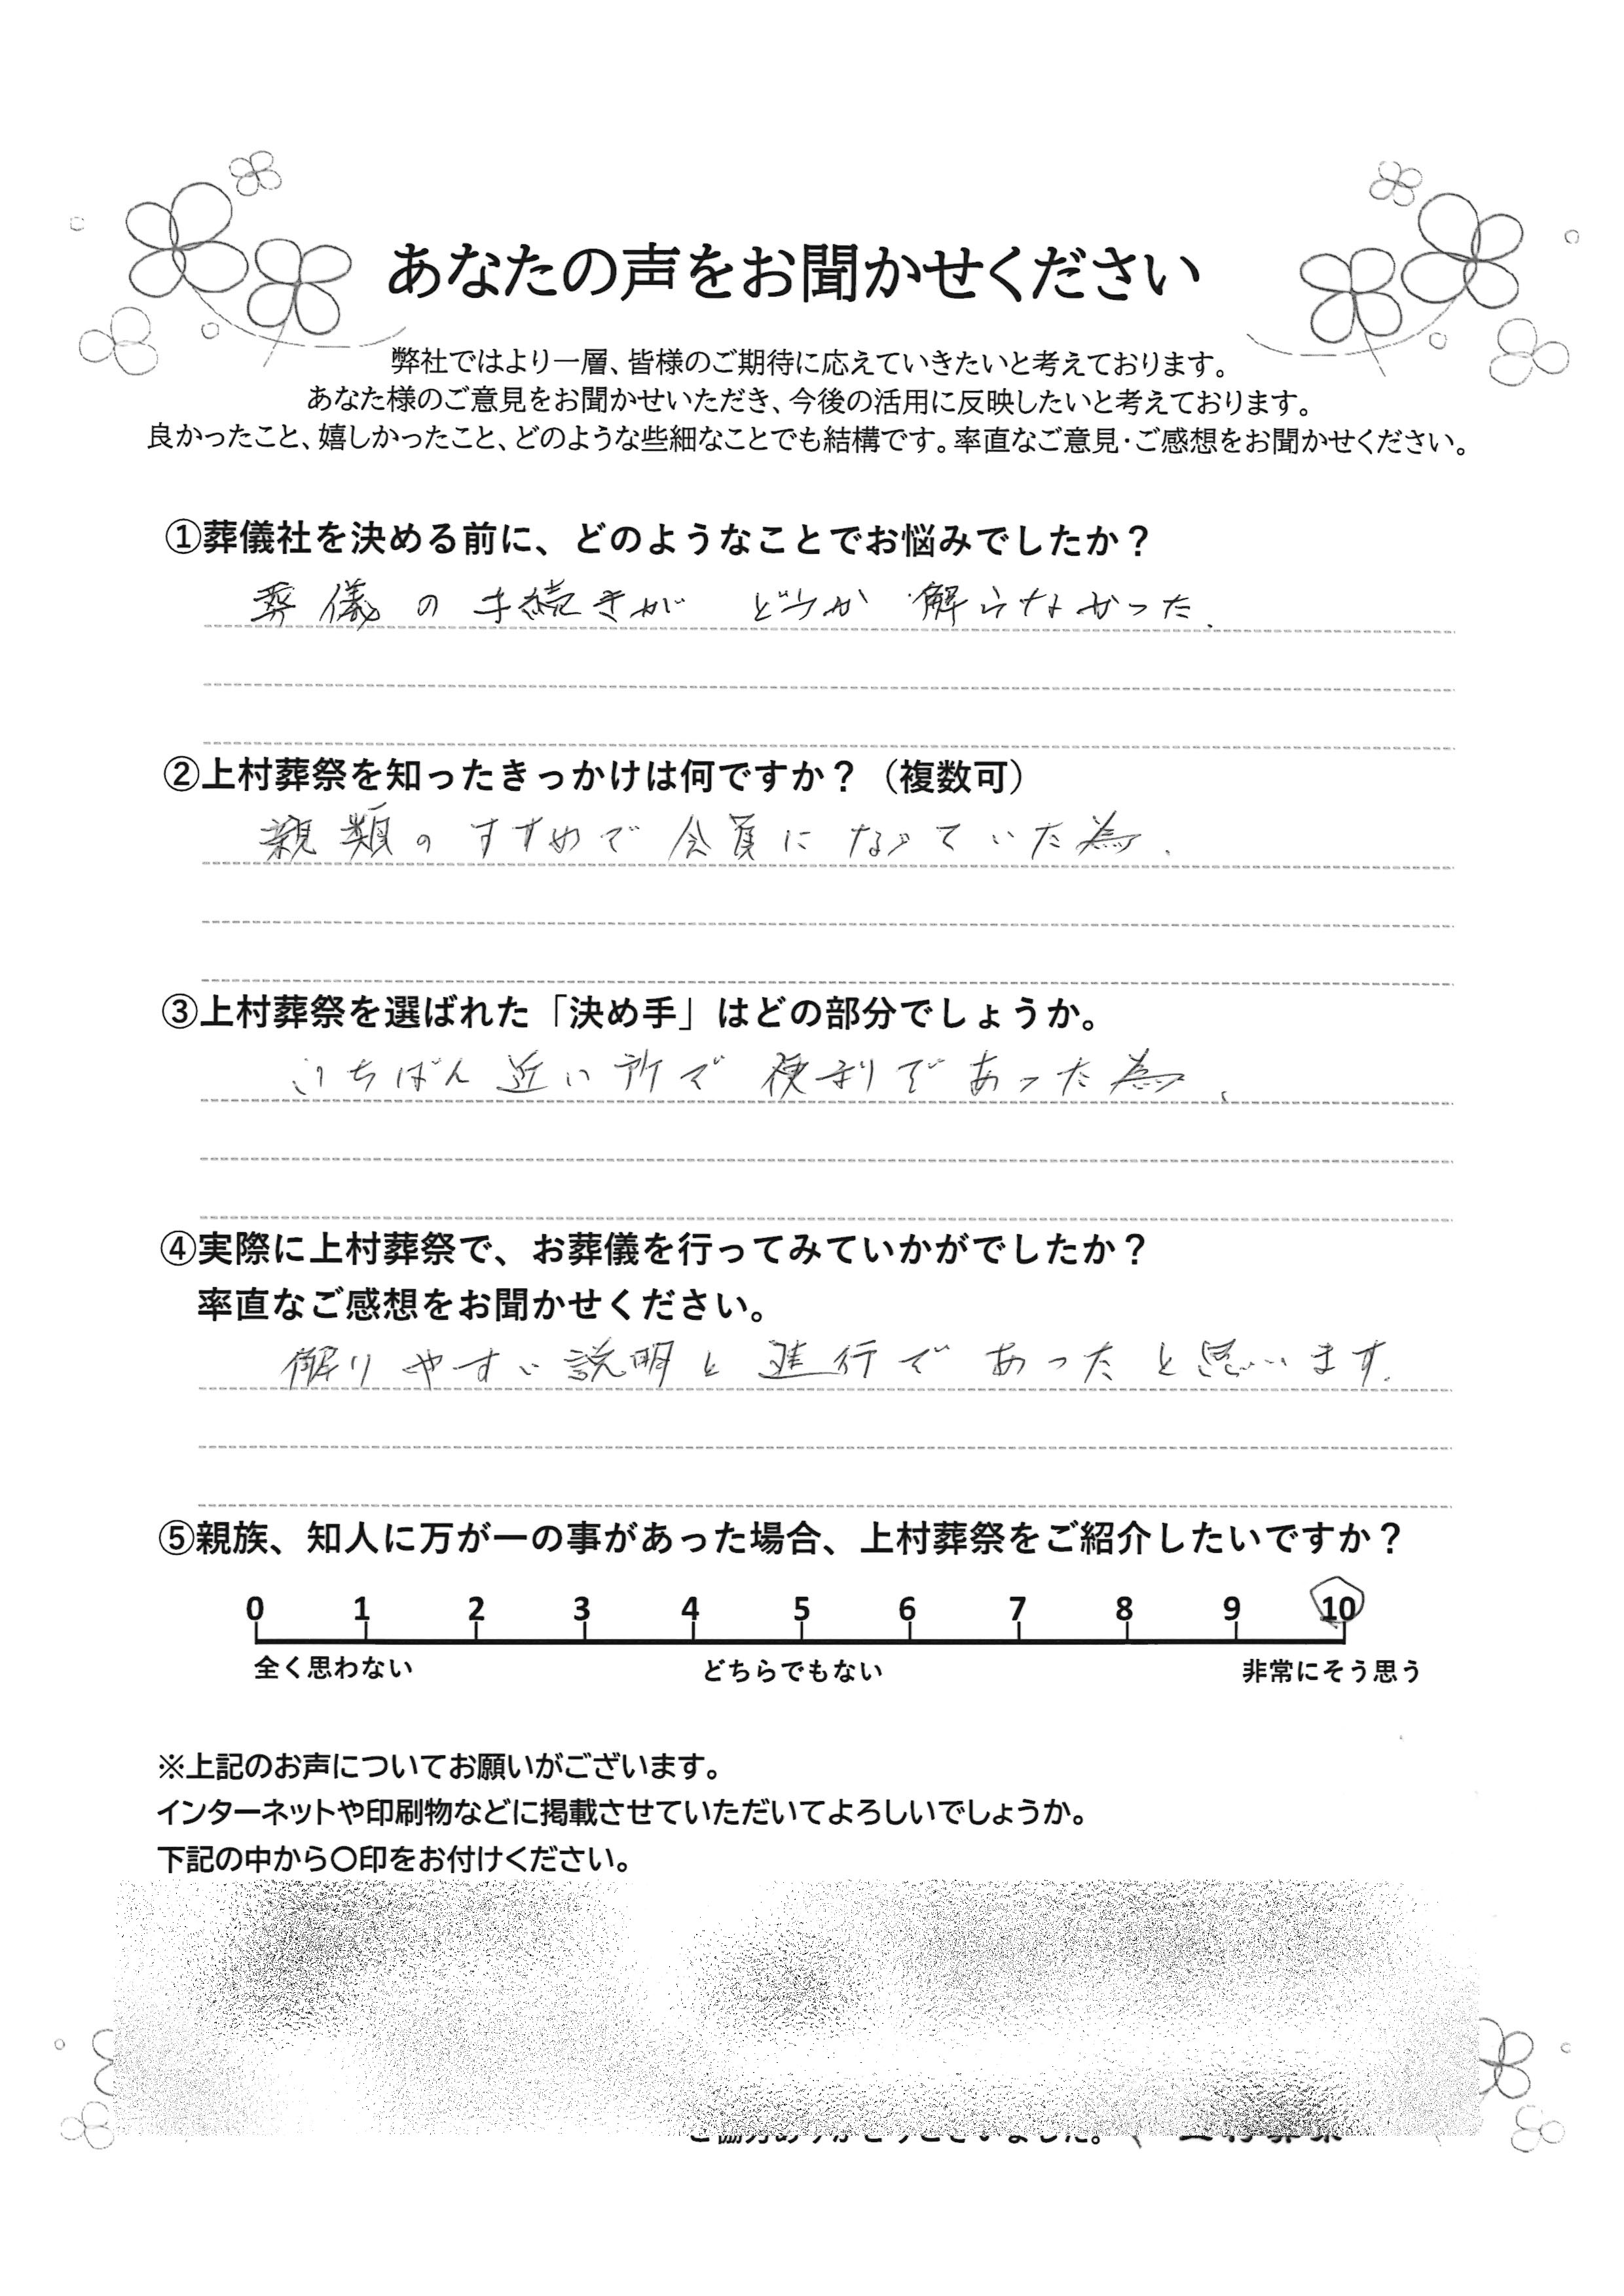 あなたの声をお聞かせください
弊社ではより一層、皆様のご期待に応えていきたいと考えております。
あなた様のご意見をお聞かせいただき、今後の活用に反映したいと考えております。
良かったこと、嬉しかったこと、どのような些細なことでも結構です。率直なご意見・ご感想をお聞かせください。
①葬儀社を決める前に、どのようなことでお悩みでしたか？
葬儀の手続きが どうか 解らなかった.
②上村葬祭を知ったきっかけは何ですか？（複数可）
親類のすすめで会員になっていた為.
③上村葬祭を選ばれた「決め手」はどの部分でしょうか。
いちばん近い所で便利であった為、
④実際に上村葬祭で、お葬儀を行ってみていかがでしたか？
率直なご感想をお聞かせください。
解りやすい説明と進行であったと思います.
⑤親族、知人に万が一の事があった場合、上村葬祭をご紹介したいですか？
0 1 2 3 4 5 6 7 8 9 10
全く思わない どちらでもない 非常にそう思う
※上記のお声についてお願いがございます。
インターネットや印刷物などに掲載させていただいてよろしいでしょうか。
下記の中から〇印をお付けください。